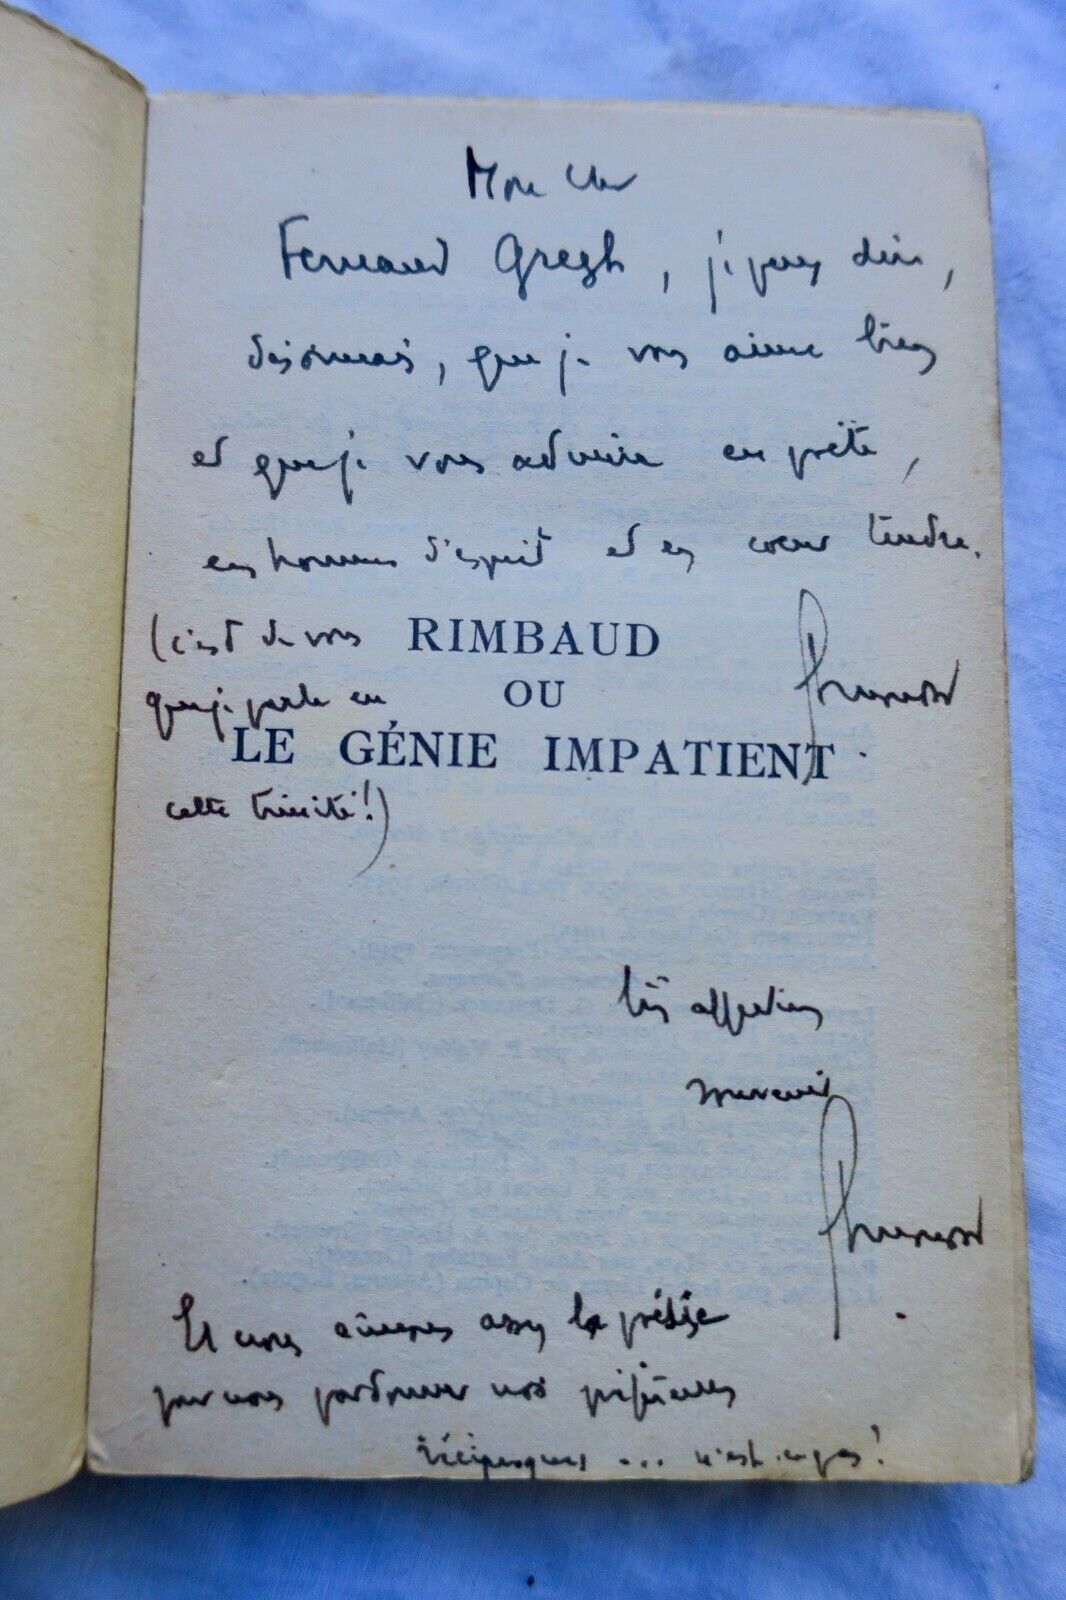 Mon cher
Fernand Gregh, je puis dire,
désormais, que je vous aime bien
et que je vous admire en poète,
en homme d'esprit et en cœur tendre.
(c'est de vous
RIMBAUD
que je parle en
OU
LE GÉNIE IMPATIENT
cette trinité!)
très affectueux
merci
Et nous aimons assez la poésie
pour nous pardonner nos préférences
réciproques ... n'est-ce pas!